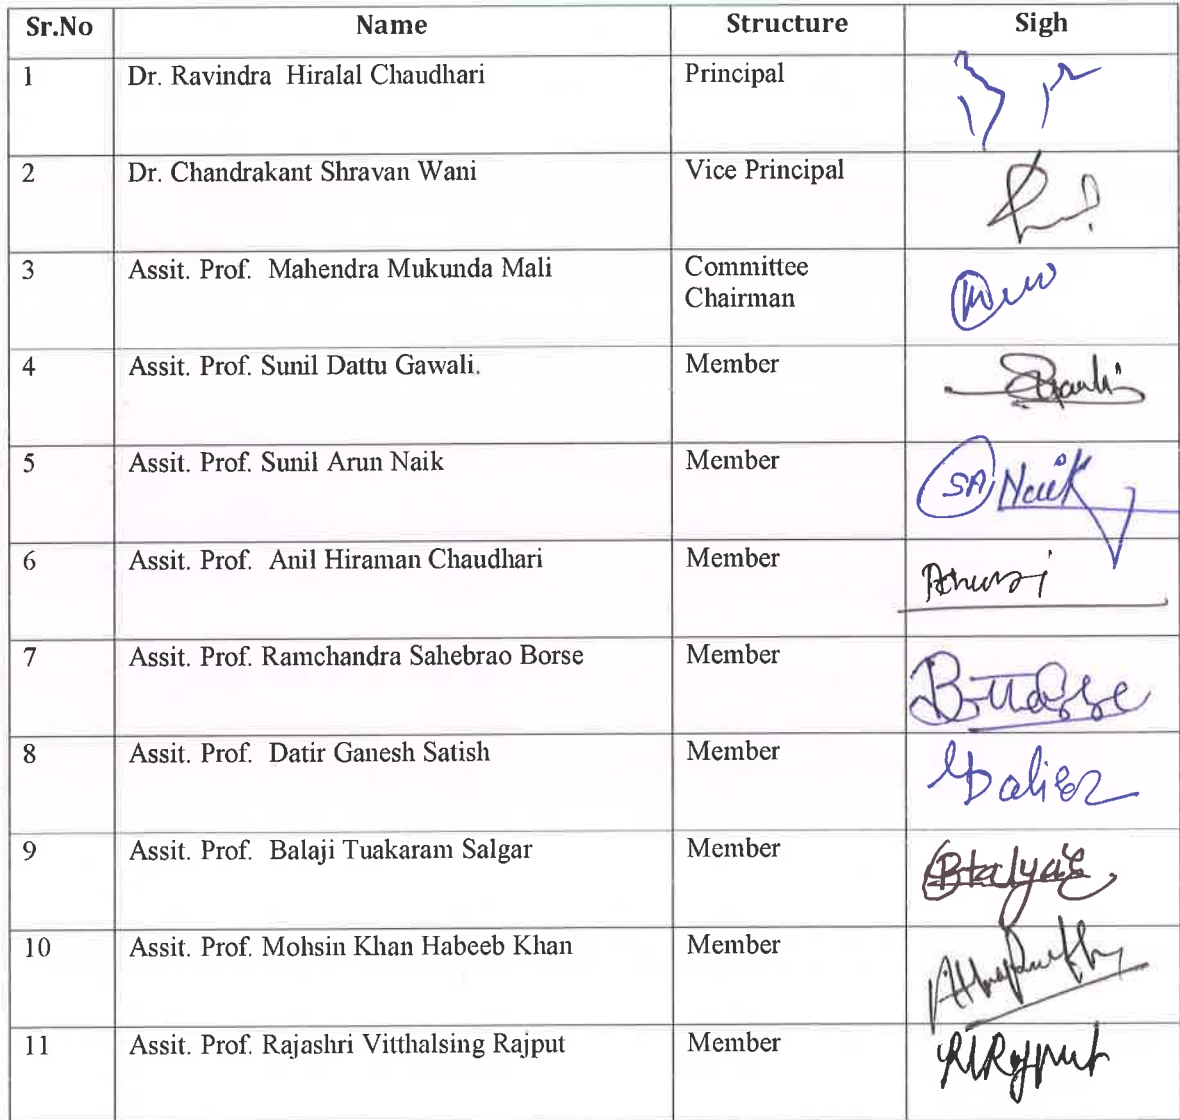 Sr.No Name Structure Sigh
1 Dr. Ravindra Hiralal Chaudhari Principal
2 Dr. Chandrakant Shravan Wani Vice Principal
3 Assit. Prof. Mahendra Mukunda Mali Committee
Chairman
4 Assit. Prof. Sunil Dattu Gawali. Member
5 Assit. Prof. Sunil Arun Naik Member SA Naik
6 Assit. Prof. Anil Hiraman Chaudhari Member
7 Assit. Prof. Ramchandra Sahebrao Borse Member
8 Assit. Prof. Datir Ganesh Satish Member
9 Assit. Prof. Balaji Tuakaram Salgar Member
10 Assit. Prof. Mohsin Khan Habeeb Khan Member
11 Assit. Prof. Rajashri Vitthalsing Rajput Member RVRajput